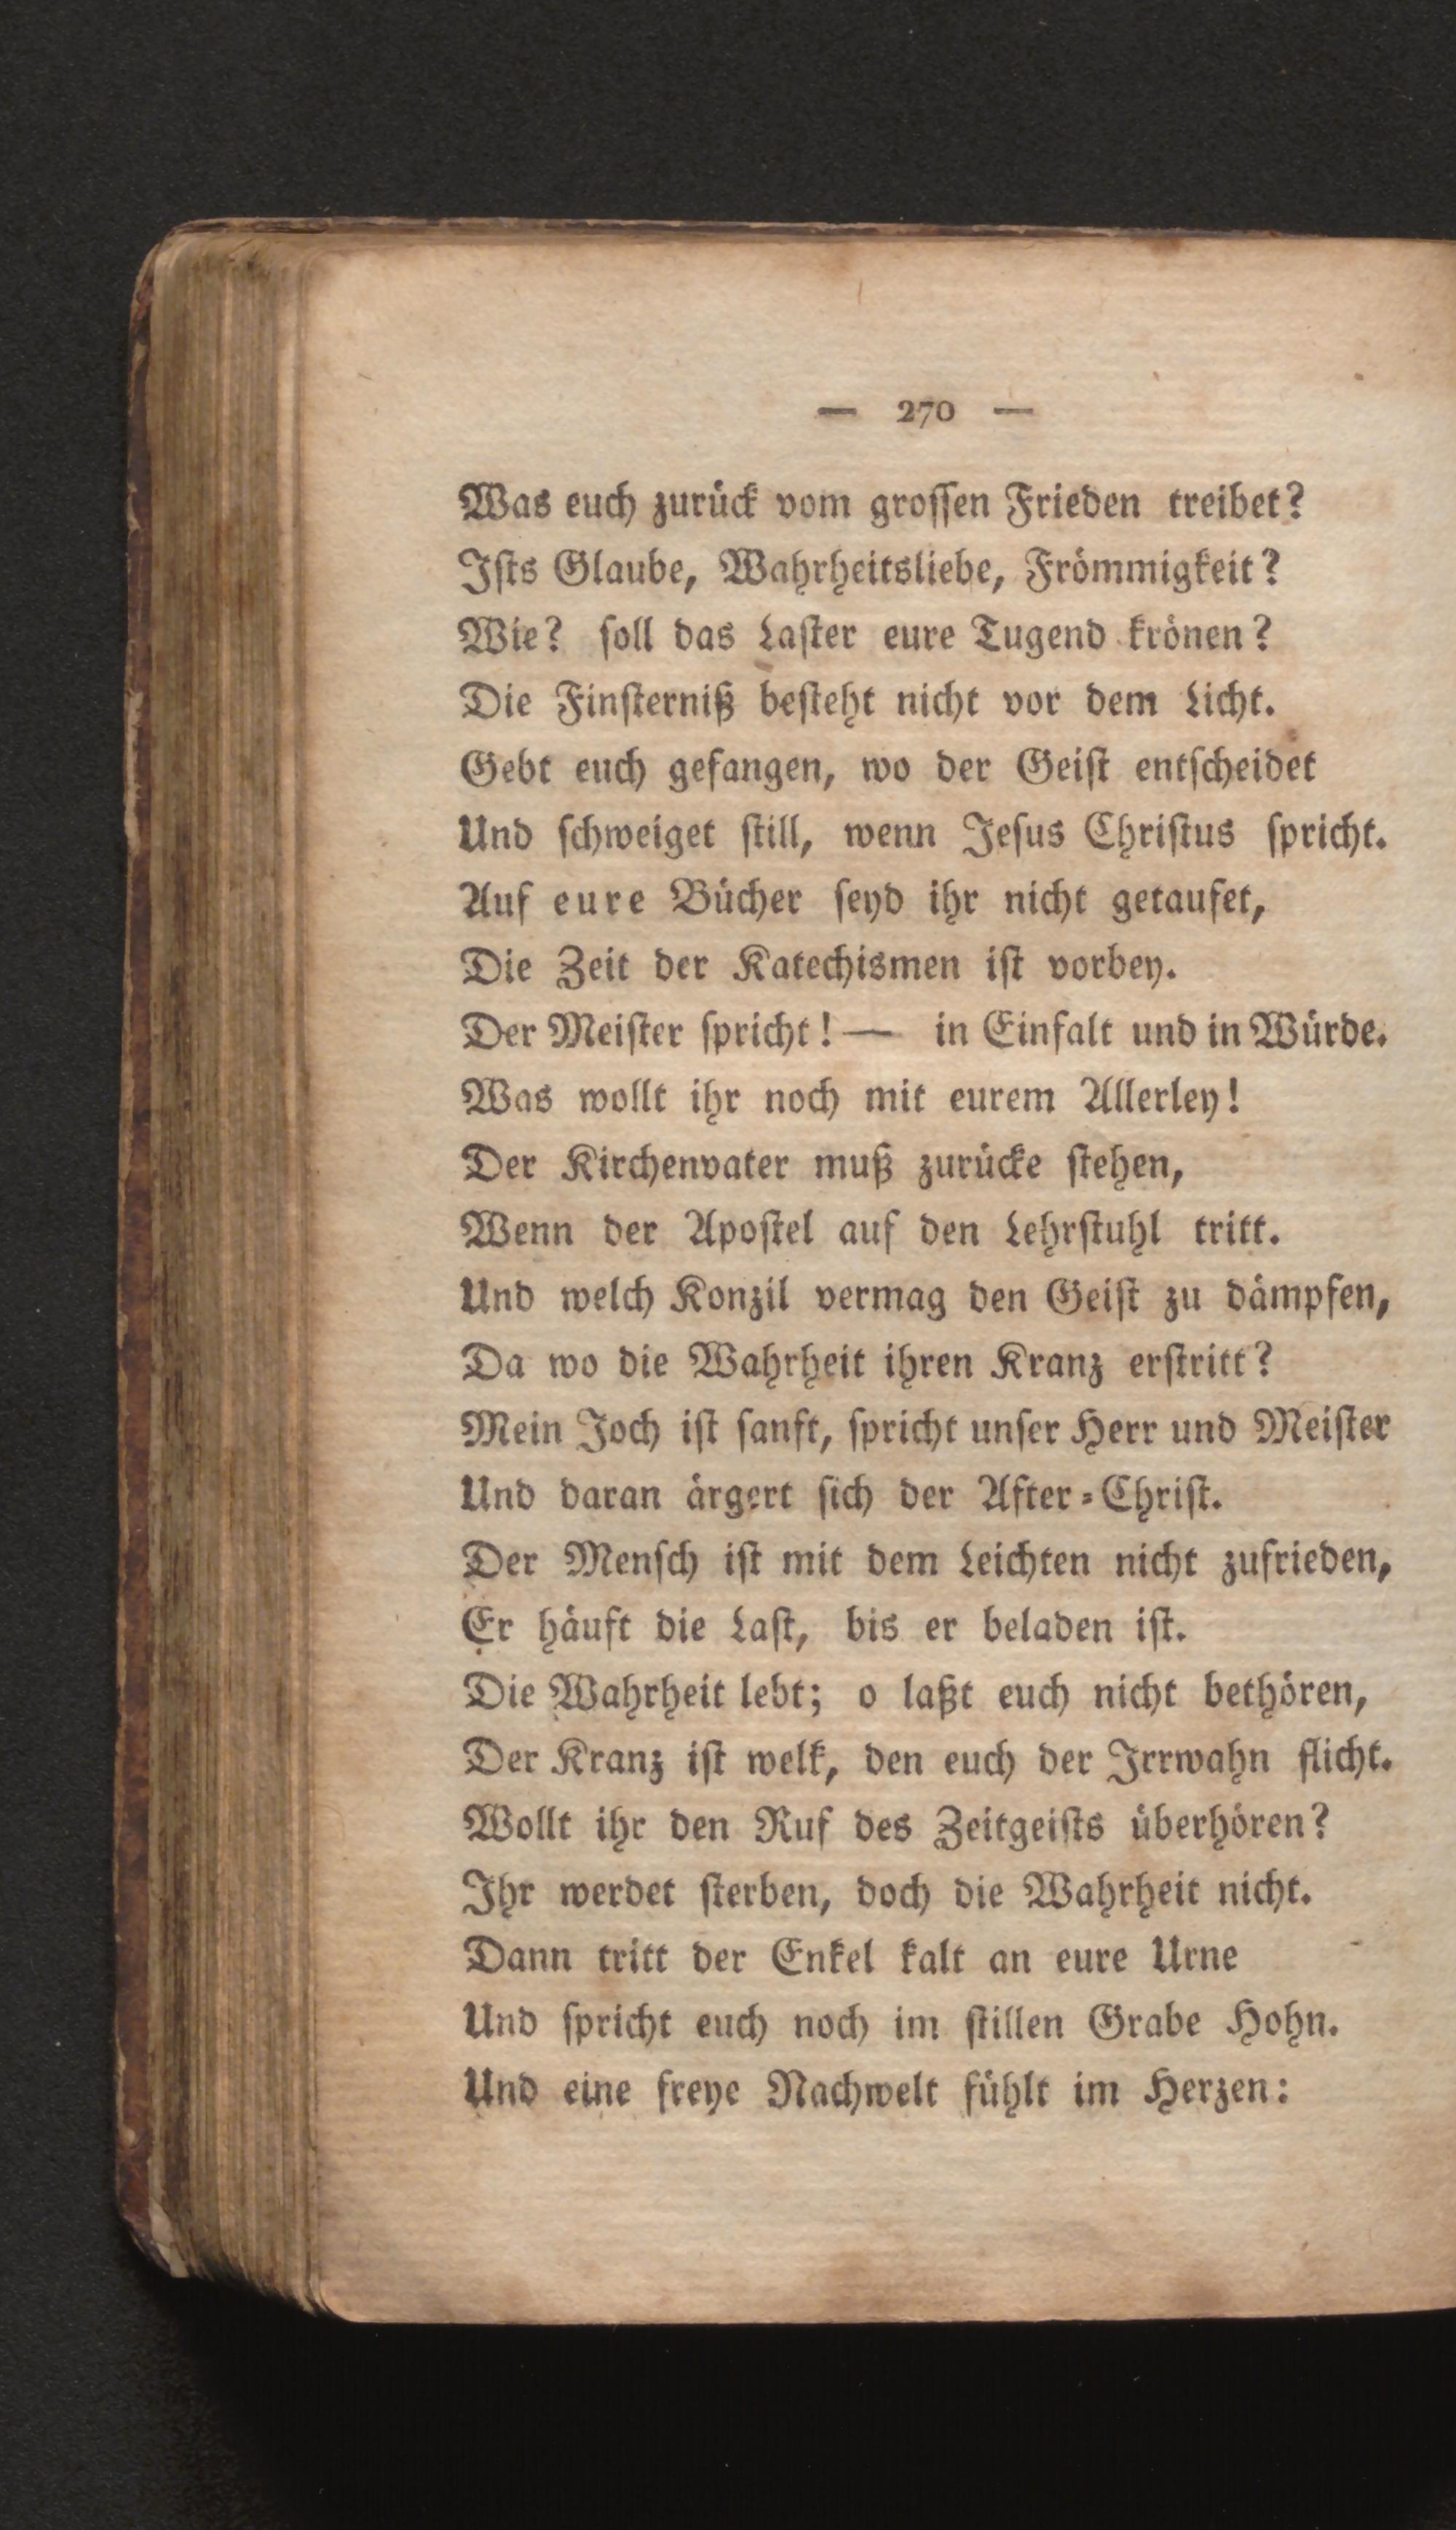 — 270 —
Was euch zurück vom groſſen Frieden treibet?
Iſts Glaube, Wahrheitsliebe, Frömmigkeit?
Wie? ſoll das Laſter eure Tugend krönen?
Die Finſterniß beſteht nicht vor dem Licht.
Gebt euch gefangen, wo der Geiſt entſcheidet
Und ſchweiget ſtill, wenn Jeſus Chriſtus ſpricht.
Auf eure Bücher ſeyd ihr nicht getaufet,
Die Zeit der Katechismen iſt vorbey.
Der Meiſter ſpricht! — in Einfalt und in Würde.
Was wollt ihr noch mit eurem Allerley!
Der Kirchenvater muß zurücke ſtehen,
Wenn der Apoſtel auf den Lehrſtuhl tritt.
Und welch Konzil vermag den Geiſt zu dämpfen,
Da wo die Wahrheit ihren Kranz erſtritt?
Mein Joch iſt ſanft, ſpricht unſer Herr und Meiſter
Und daran ärgert ſich der After-Chriſt.
Der Menſch iſt mit dem Leichten nicht zufrieden,
Er häuft die Laſt, bis er beladen iſt.
Die Wahrheit lebt; o laßt euch nicht bethören,
Der Kranz iſt welk, den euch der Irrwahn flicht.
Wollt ihr den Ruf des Zeitgeiſts überhören?
Ihr werdet ſterben, doch die Wahrheit nicht.
Dann tritt der Enkel kalt an eure Urne
Und ſpricht euch noch im ſtillen Grabe Hohn.
Und eine freye Nachwelt fühlt im Herzen: